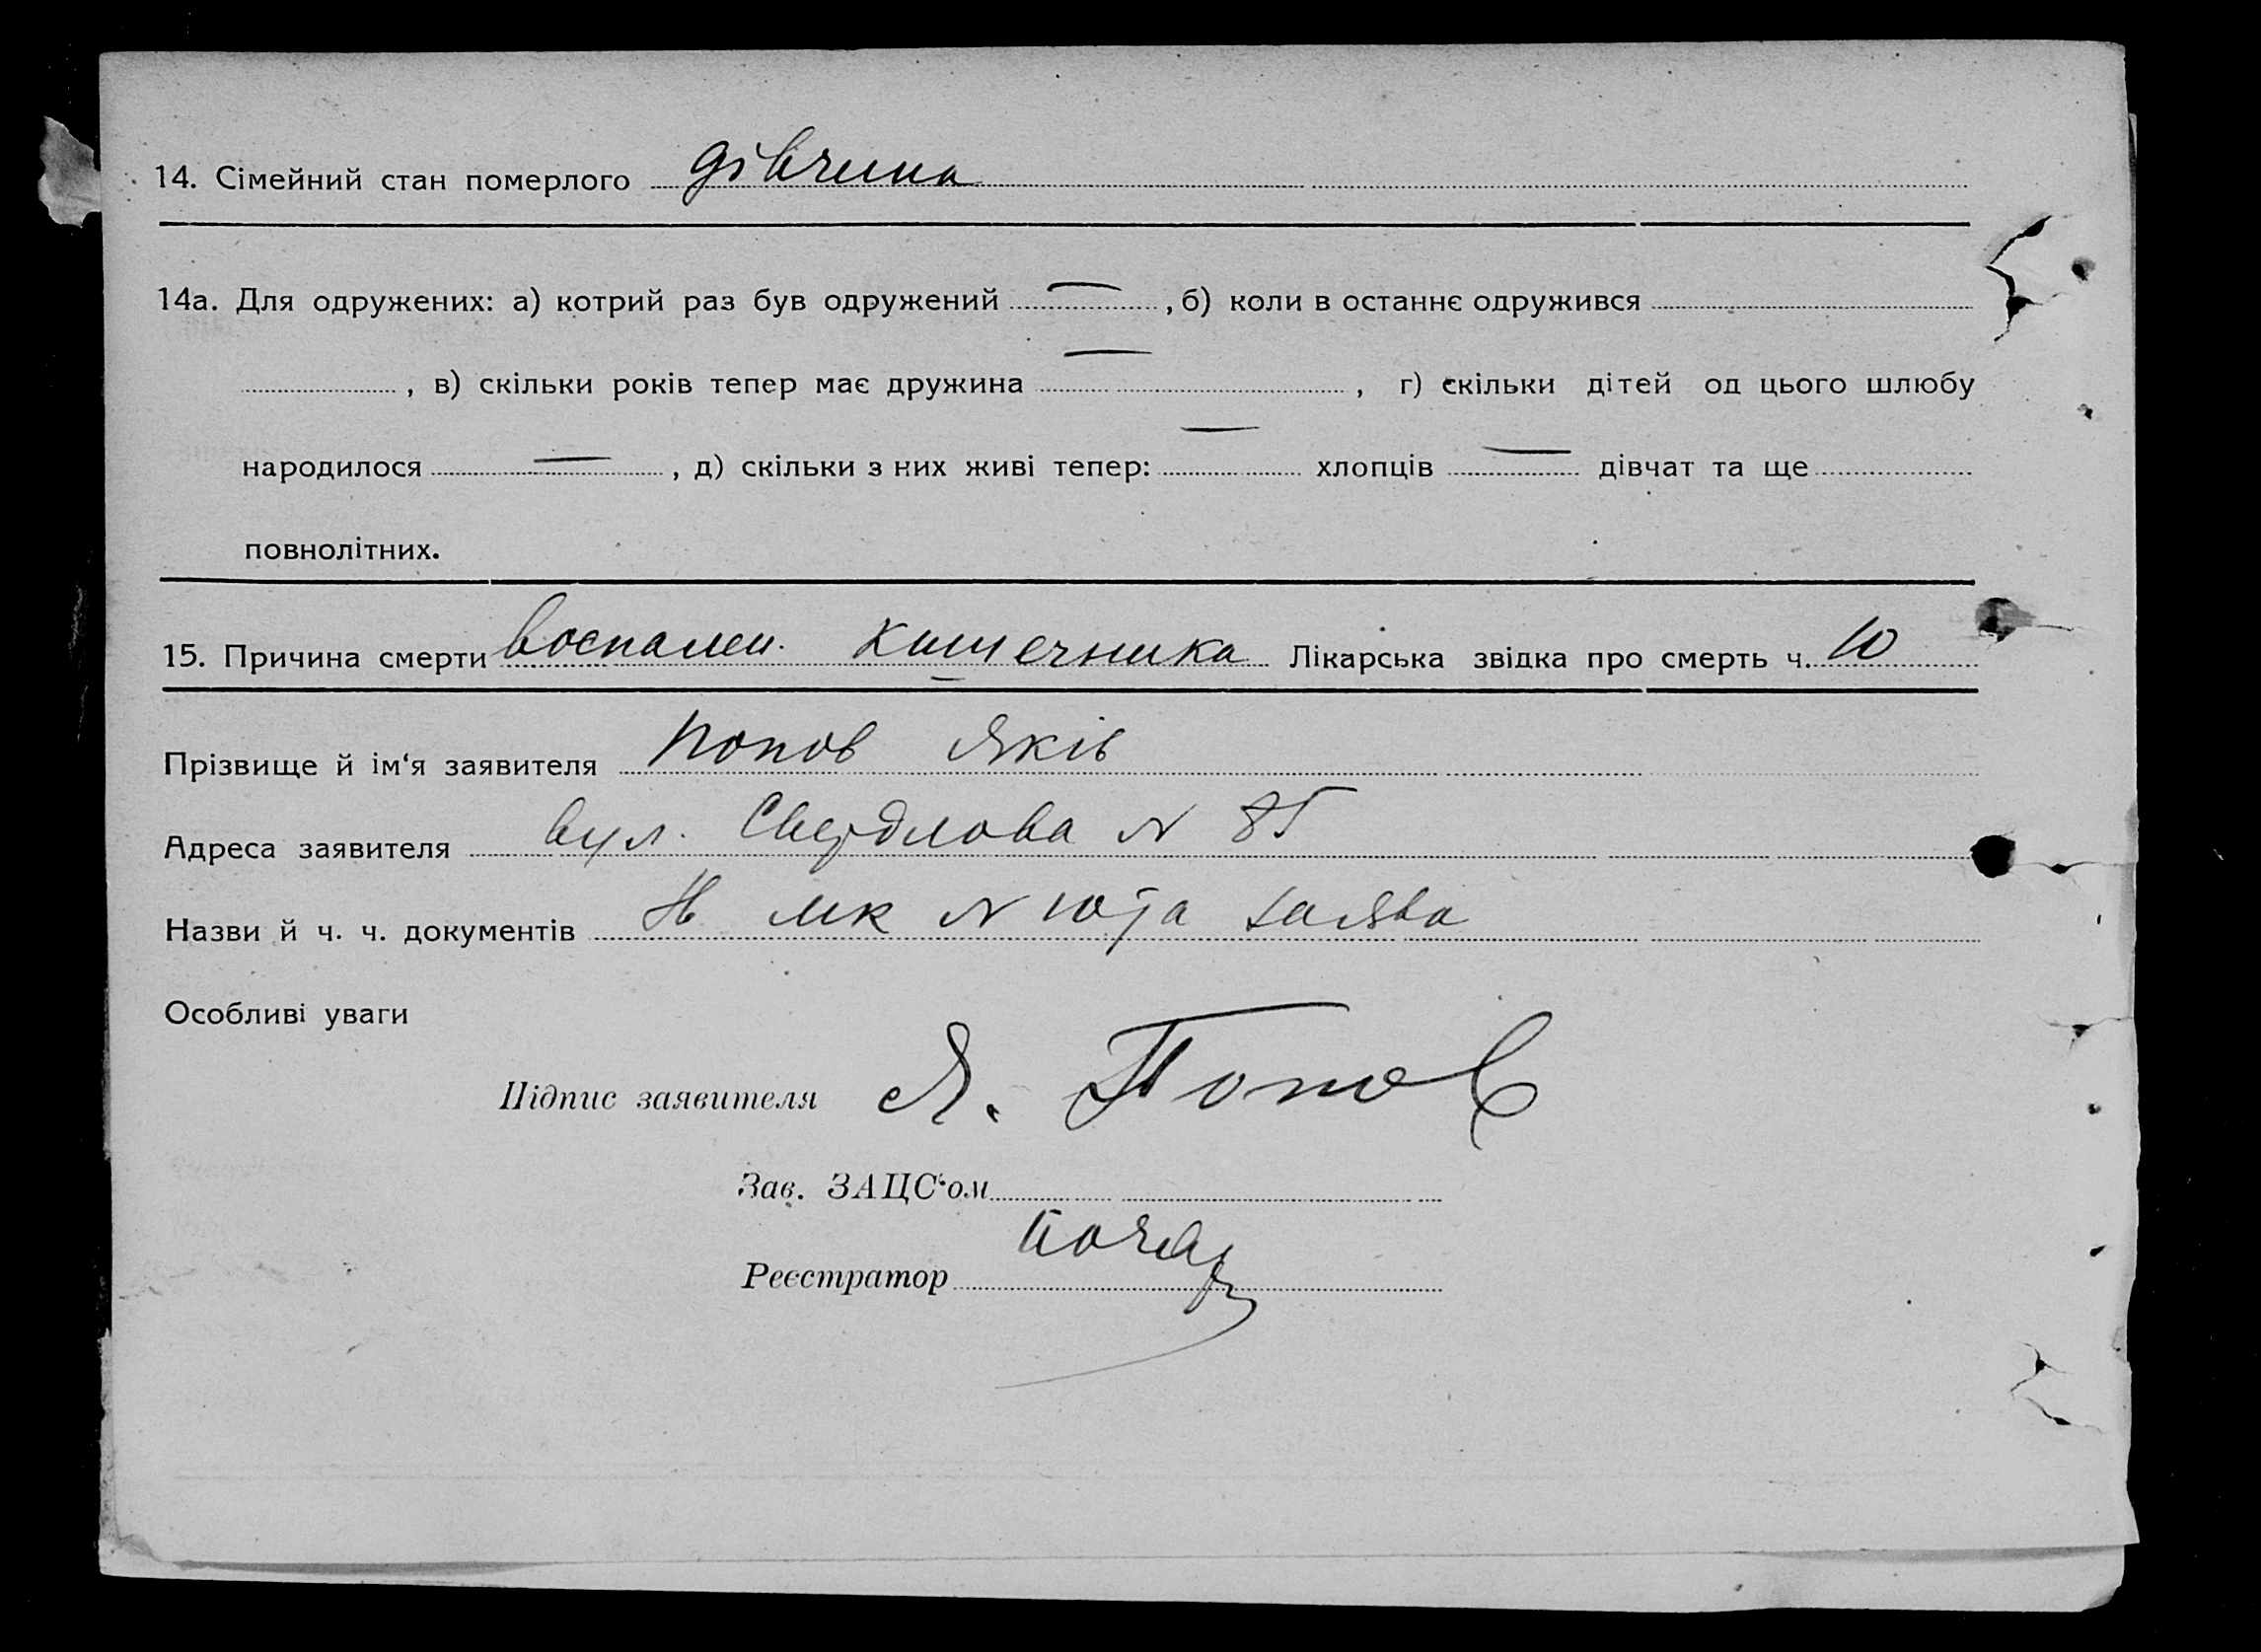 14. Сімейний стан померлого дівчина
14а. Для одружених: а) котрий раз був одружений — , б) коли в останнє одружився
, в) скільки років тепер має дружина — , г) скільки дітей од цього шлюбу
народилося — , д) скільки з них живі тепер: — хлопців — дівчат та ще
повнолітних.
15. Причина смерти воспален. кишечника Лікарська звідка про смерть ч. 10
Прізвище й ім‘я заявителя Попов Яків
Адреса заявителя вул. Свердлова N
Назви й ч. ч. документів N 10 та заява
Особливі уваги
Підпис заявителя Я. Попов
Зав. ЗАЦС‘ом
Реєстратор